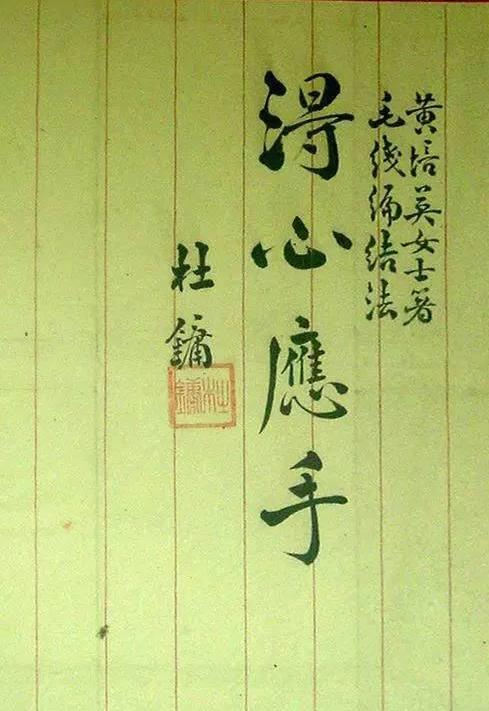 黄培英女士著
毛线编结法
得心應手
杜鏞